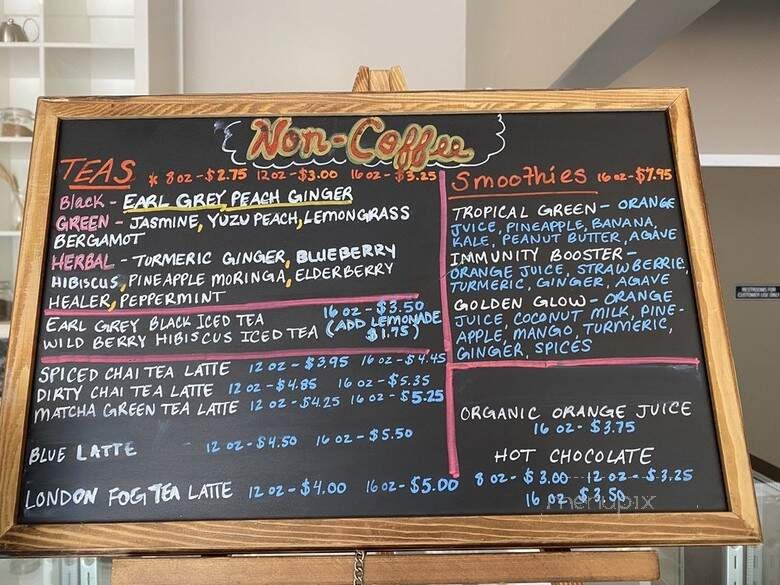 Non-Coffee
TEAS * 8 oz - $2.75 12 oz - $3.00 16 oz - $3.25
Black - EARL GREY, PEACH GINGER
GREEN - JASMINE, YUZU PEACH, LEMONGRASS
BERGAMOT
HERBAL - TURMERIC GINGER, BLUEBERRY
HIBISCUS, PINEAPPLE MORINGA, ELDERBERRY
HEALER, PEPPERMINT
EARL GREY BLACK ICED TEA 16 oz - $3.50
WILD BERRY HIBISCUS ICED TEA (ADD LEMONADE
$1.75)
SPICED CHAI TEA LATTE 12 oz - $3.95 16 oz - $4.45
DIRTY CHAI TEA LATTE 12 oz - $4.85 16 oz - $5.35
MATCHA GREEN TEA LATTE 12 oz - $4.25 16 oz - $5.25
BLUE LATTE 12 oz - $4.50 16 oz - $5.50
LONDON FOG TEA LATTE 12 oz - $4.00 16 oz - $5.00
Smoothies 16 oz - $7.95
TROPICAL GREEN - ORANGE
JUICE, PINEAPPLE, BANANA,
KALE, PEANUT BUTTER, AGAVE
IMMUNITY BOOSTER -
ORANGE JUICE, STRAWBERRIE,
TURMERIC, GINGER, AGAVE
GOLDEN GLOW - ORANGE
JUICE, COCONUT MILK, PINE-
APPLE, MANGO, TURMERIC,
GINGER, SPICES
ORGANIC ORANGE JUICE
16 oz - $3.75
HOT CHOCOLATE
8 oz - $3.00 -- 12 oz -- $3.25
16 oz $3.50
menupix
RESTROOMS FOR
CUSTOMER USE ONLY